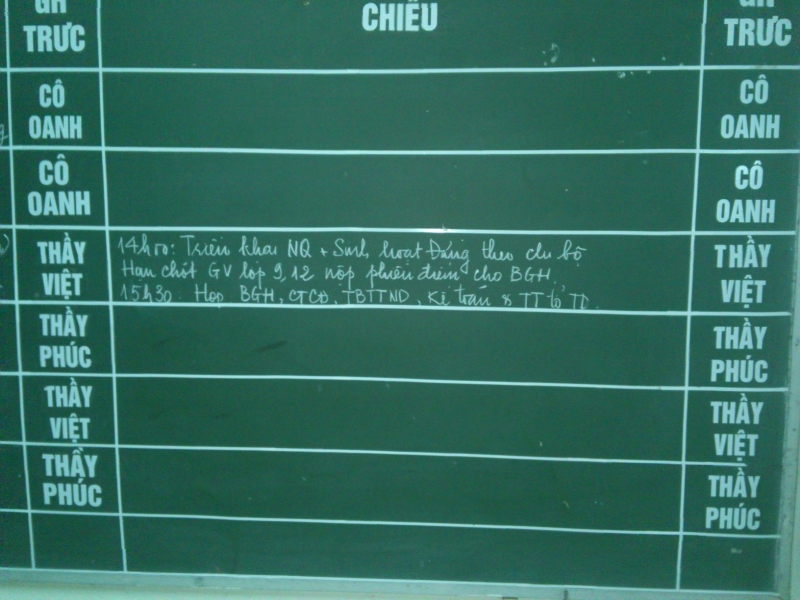 TRỰC
CHIỀU
TRỰC
CÔ
OANH
CÔ
OANH
CÔ
OANH
CÔ
OANH
THẦY
VIỆT
14h00: Triển khai NQ + Sinh hoạt Đảng theo chi bộ
Hạn chót GV lớp 9, 12 nộp phiếu điểm cho BGH
15h30. Họp BGH, CTCĐ, TBTTND, Kế toán & TT tổ
THẦY
VIỆT
THẦY
PHÚC
THẦY
PHÚC
THẦY
VIỆT
THẦY
VIỆT
THẦY
PHÚC
THẦY
PHÚC